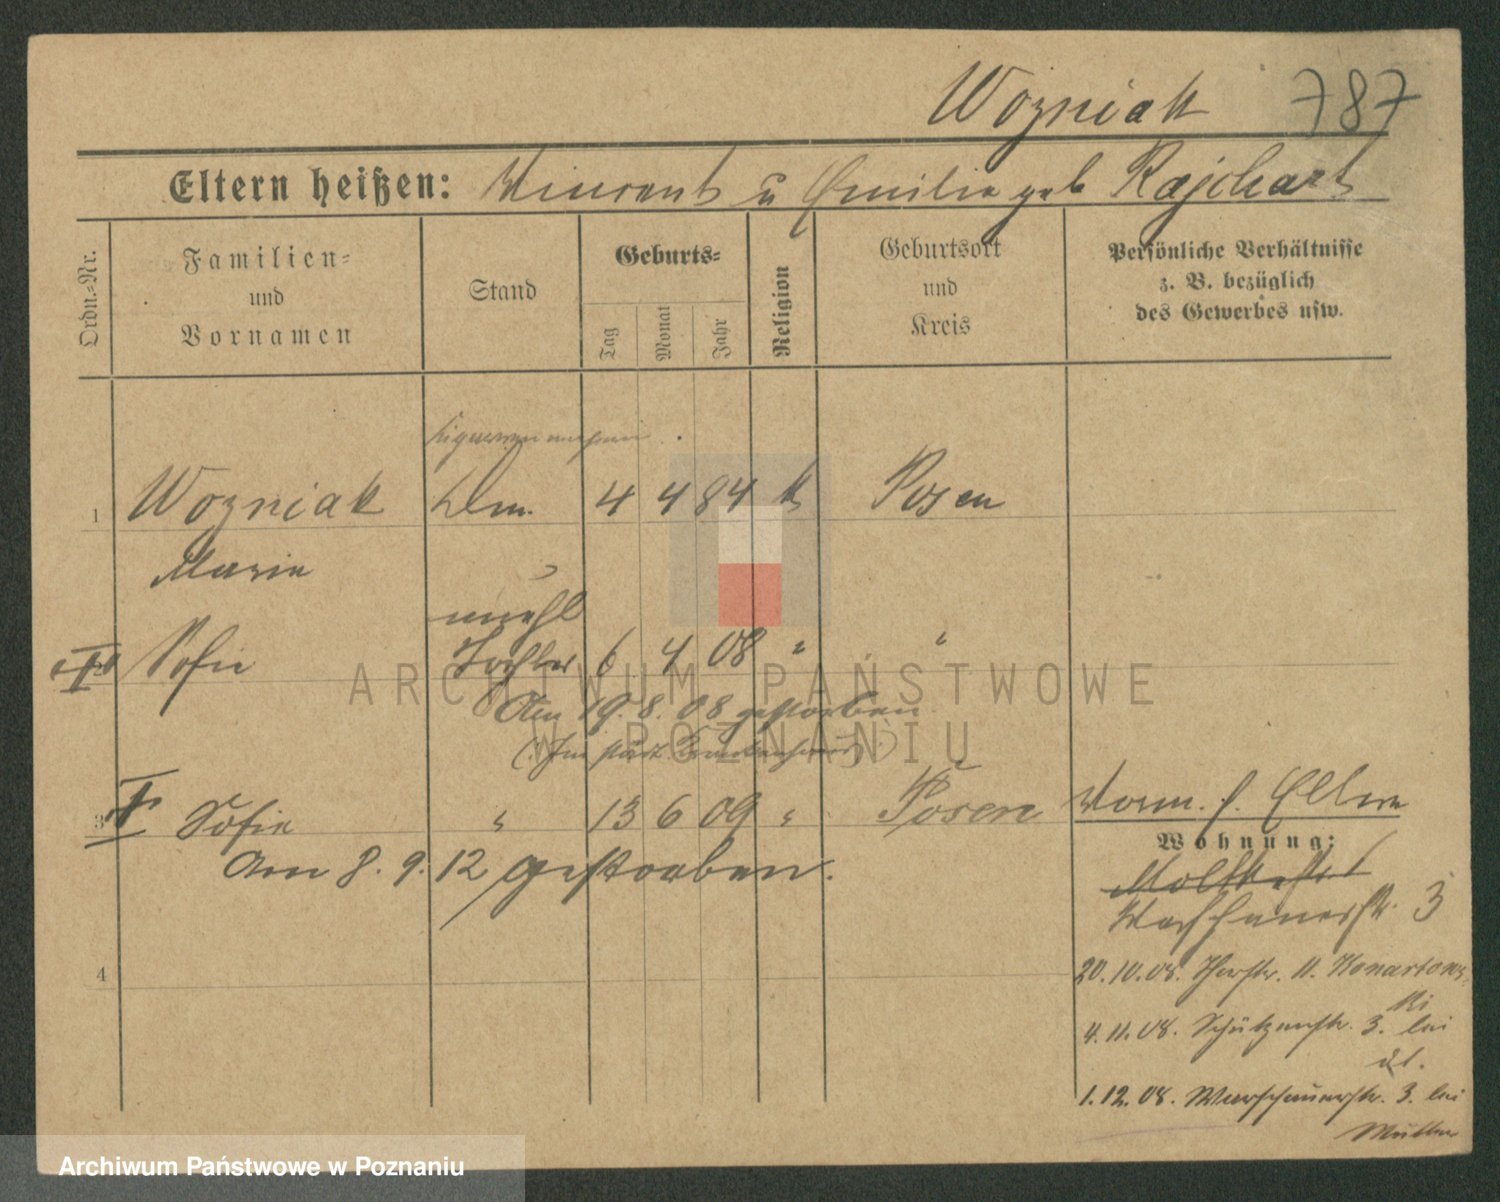 Wozniak 787
Eltern heißen: Vincent u Emilie geb Rajchart
Ordn.-Nr.
Familien-
und
Vornamen
Stand
Geburts-
Tag
Monat
Jahr
Religion
Geburtsort
und
Kreis
Persönliche Verhältnisse
z. B. bezüglich
des Gewerbes usw.
1 Wozniak 4 4 84 k Posen
Marie
unehl
Sofie Tochter 6 4 08 " "
Am 19. 8. 08 gestorben
(Im städt. Krankenhaus)
3 Sofie " 13 6 09 " Posen
Am 8. 9. 12 gestorben.
Vorm. s. Eltern
Wohnung:
Moltkestr.
Warschauerstr. 3
20. 10. 08. 11.
4. 11. 08. Schützenstr. 3. bei
1. 12. 08. Warschauerstr. 3. bei
Mutter
4
ARCHIWUM PAŃSTWOWE
W POZNANIU
Archiwum Państwowe w Poznaniu